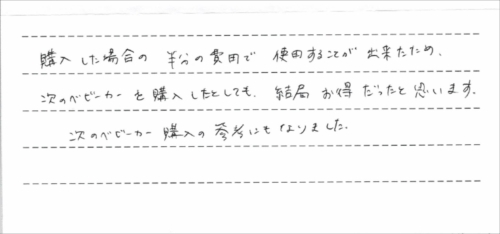 購入した場合の 半分の費用で 使用することが 出来たため、
次のベビーカーを購入したとしても、結局 お得だったと思います。
次のベビーカー購入の参考にもなりました。